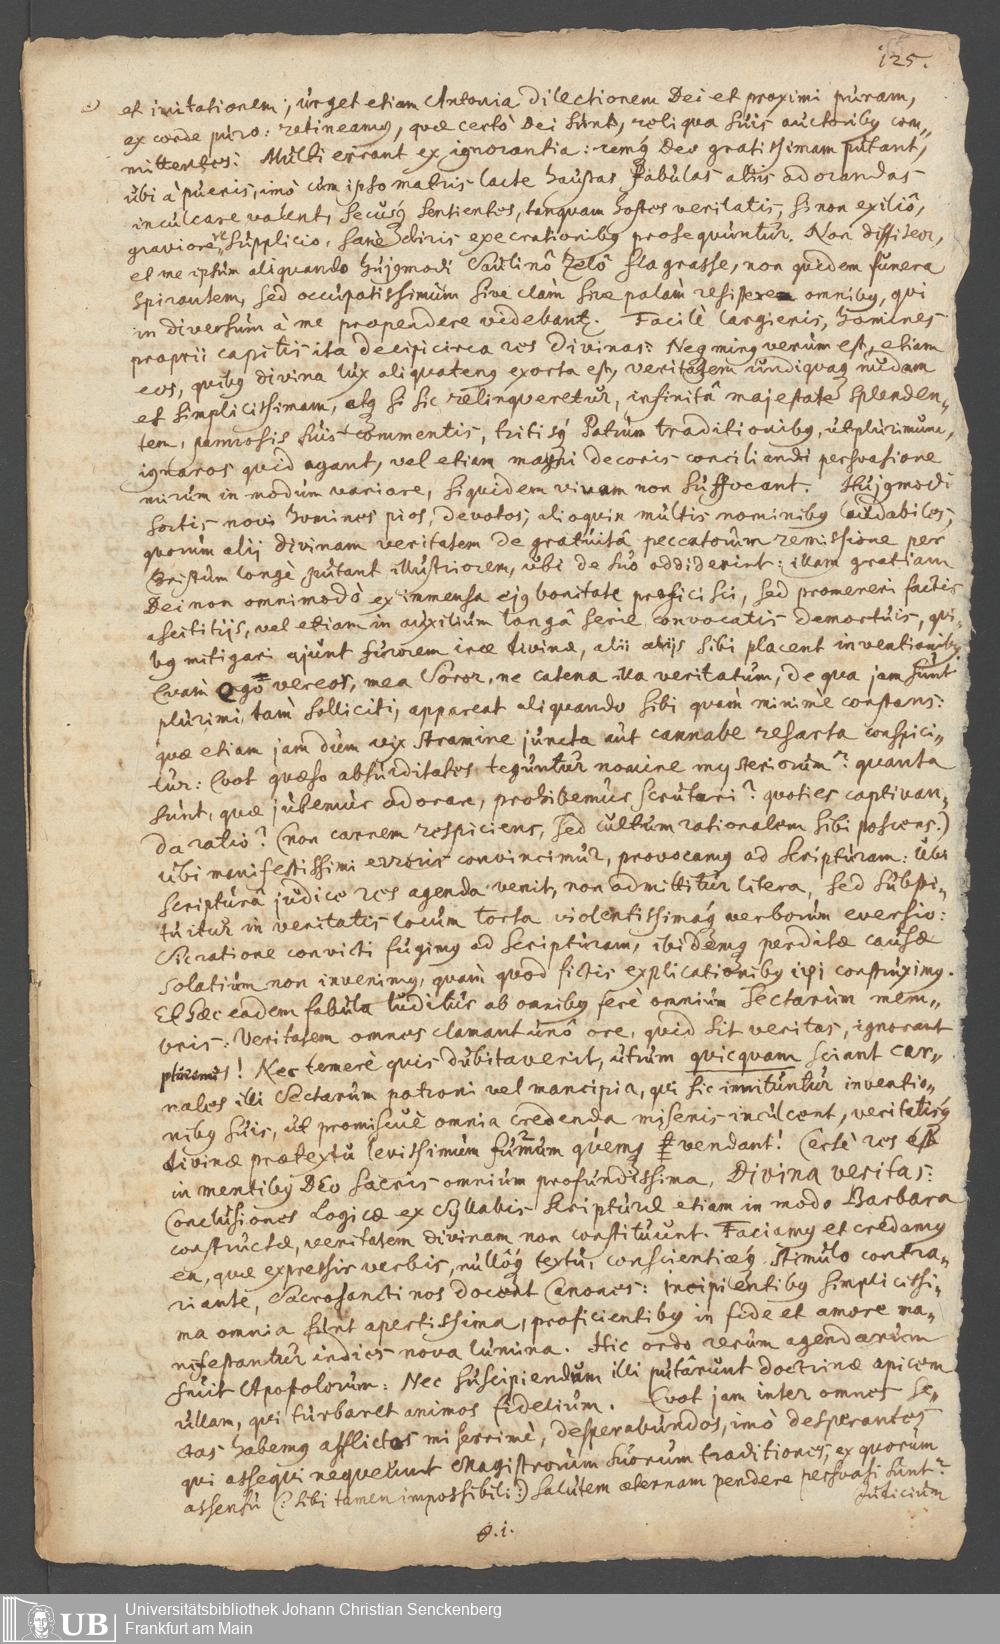 125.
et imitationem; urget etiam Antonia dilectionem Dei et proximi puram,
ex corde puro: retineamq, quæ certò Dei sunt, reliqua suis auctoribq com„
mittentes: Multi errant ex ignorantia: remq Deo gratissimam putant,
ubi à pueris, imò cum ipso matris lacte haustas fabulas aliis adorandas
inculcare valent, secusq sentientes, tanquam hostes veritatis, si non exiliô,
graviore vè supplicio, sanè diris execrationibq prosequuntur. Non diffiteor,
et me ipsum aliquando hujqmodi Paulinô Zelô flagrasse, non quidem funera
spirantem, sed occupatissimum sive clàm sive palàm resistere omnibq, qui
in diversum à me propendere videbantr. Facilè largieris, homines
proprii capitis ita decipi circa res Divinas: Neq minq verum est, etiam
eos, quibq divina lux aliquatenq exorta est, veritatem undiquaq nudam
et simplicissimam, atq si sic relinqueretur, infinitâ majestate splenden„
tem, pannosis suis commentis, tritisq Patrum traditionibq, ut plurimum,
ignaros quid agant, vel etiam magni decoris conciliandi persvasione
mirum in modum variare, siquidem vivam non suffocant. Hujqmodi
sortis novi homines pios, devotos, alioquin multis nominibq laudabiles,
quorum alij divinam veritatem de gratuitâ peccatorum remissione per
Christum longè putant illustriorem, ubi de suo addiderint: illam gratiam
Dei non omnimodò ex immensa ejq bonitate proficisci, sed promereri factis
ascititijs, vel etiam in auxilium longâ serie convocatis demortuis, qui„
bq mitigari ajunt furorem iræ divinæ, alii alijs sibi placent inventionibq.
Quàm Ego vereor, mea Soror, ne catena illa veritatum, de qua jam sunt
plurimi tam solliciti, appareat aliquando sibi quàm minimè constans:
quæ etiam jam dum vix stramine juncta aut cannabe resarta conspici„
tur: Qvot quæso absurditates teguntur nomine mysteriorum? quanta
sunt, quæ jubemur adorare, prohibemur scrutari? quoties captivan„
da ratio? (non carnem respiciens, sed cultum rationalem sibi poscens.)
Ubi manifestissimi erroris convincimur, provocamq ad Scripturam: Ubi
Scripturâ judice res agenda venit, non admittitur litera, sed substi„
tuitur in veritatis locum torta violentissimaq verborum eversio:
Sic ratione convicti fugimq ad Scripturam, ibidemq perditæ causæ
solatium non invenimq, quàm quod fictis explicationibq ipsi construximq.
Et hæc eadem fabula luditur ab omnibq ferè omnium Sectarum mem„
bris: Veritatem omnes clamant unô ore, quid sit veritas, ignorant
plurimi! Nec temerè quis dubitaverit, utrum quicquam sciant car„
nales illi Sectarum patroni vel mancipia, qui sic innituntur inventio„
nibq suis, ut promiscuè omnia credenda miseris inculcent, veritatisq
divinæ prætextu levissimum fumum quemq vendant! Certè res est
in mentibq Deo sacris omnium profundissima, Divina veritas:
Conclusiones Logicæ ex Syllabis Scripturæ etiam in modo Barbara
constructæ, veritatem divinam non constituunt. Faciamq et credamq
ea, quæ expressis verbis, nullôq textu, conscientiæq stimulo contra„
riante, Sacrosancti nos docent Canones: Incipientibq simplicissi„
ma omnia sunt apertissima, proficientibq in fide et amore ma„
nifestantur indies nova lumina. Hic ordo rerum agendarum
fuit Apostolorum: Nec suscipiendum illi putârunt doctrinæ apicem
ullam, qui turbaret animos fidelium. Qvot jam inter omnes Se„
ctas habemq afflictos miserrimè, desperabundos, imò desperantes
qui assequi nequeunt Magistrorum suorum traditiones, ex quorum
assensu (: sibi tamen impossibili:) salutem æternam pendere persvasi sunt?
Judicium
Universitätsbibliothek Johann Christian Senckenberg
Frankfurt am Main
UB